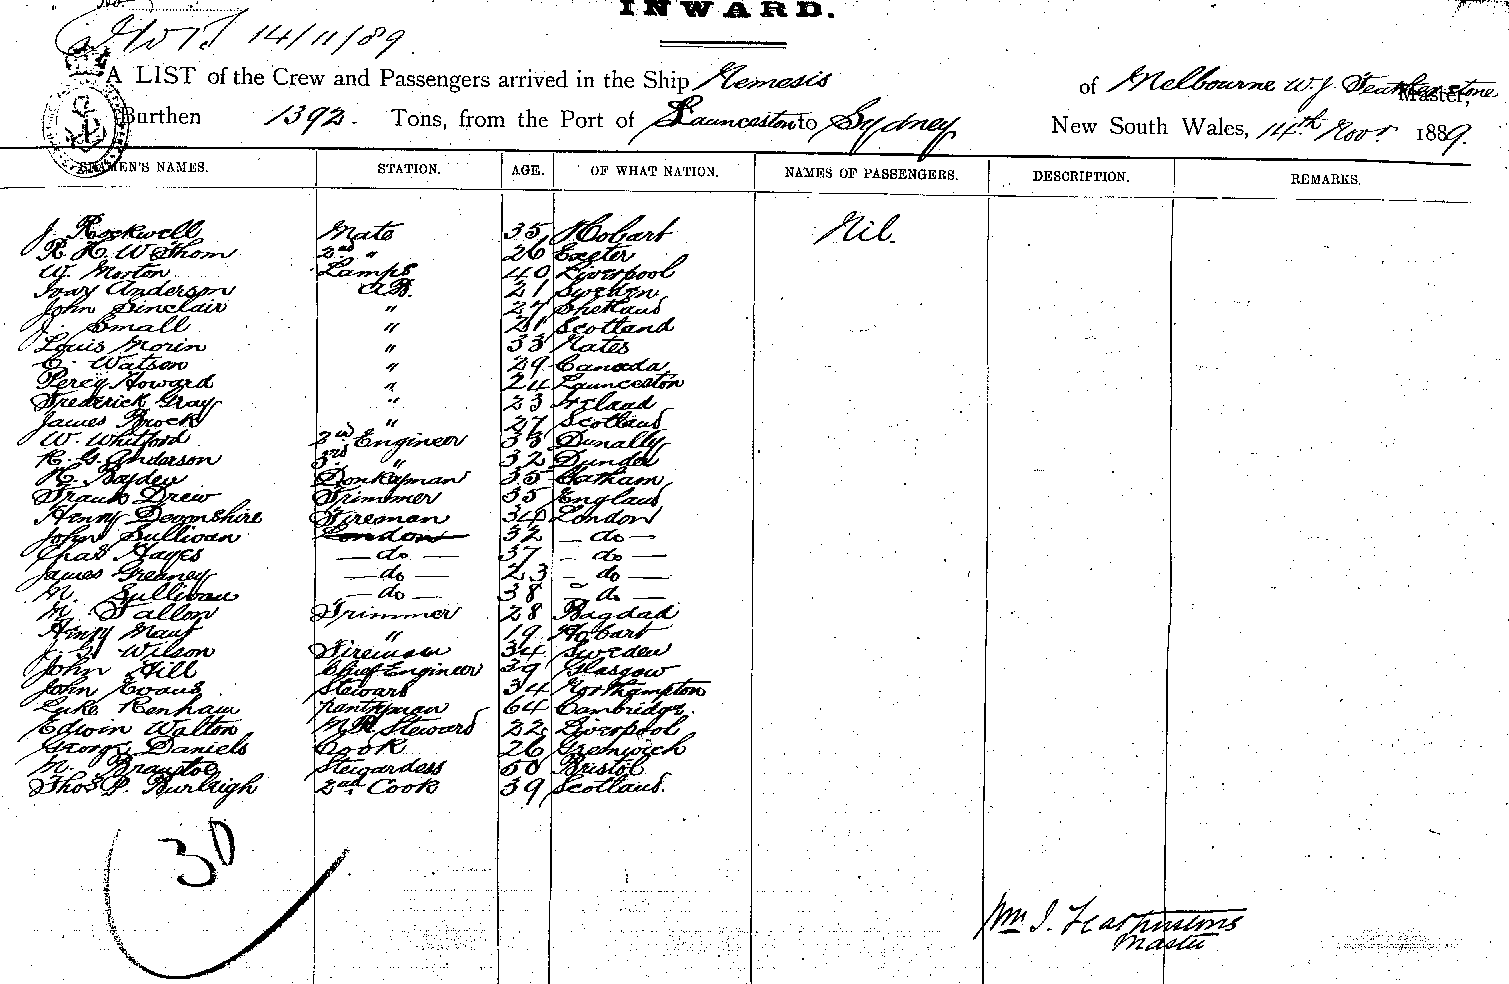 INWARD.
14/11/89
A LIST of the Crew and Passengers arrived in the Ship Nemesis of Melbourne W. J. Featherstone Master,
Burthen 1392. Tons, from the Port of Launceston to Sydney New South Wales, 14th Novr 1889.
SEAMEN'S NAMES. STATION. AGE. OF WHAT NATION. NAMES OF PASSENGERS. DESCRIPTION. REMARKS.
J. Rockwell Mate 35 Hobart Nil.
R. H. W Thom 2nd " 26 Exeter
W. Morton Lamps 40 Liverpool
Ivar Anderson A.B. 21 Sweden
John Sinclair " 27 Shetland
J. Small " 21 Scotland
Louis Morin " 33
C. Watson " 29 Canada
Percy Howard " 24 Launceston
Frederick Gray " 23 Ireland
James Brock " 27 Scotland
W. Whitford 2nd Engineer 33 Dunally
R. G. Anderson 3rd " 32 Dundee
Donkeyman 35 Chatham
Frank Drew Trimmer 35 England
Henry Devonshire Fireman 34 London
John Sullivan London 32 - do -
Chas Hayes - do - 37 - do -
James Greaney - do - 23 - do -
M. Sullivan - do - 38 - do -
M. Fallon Trimmer 28 Bagdad
Henry " 19 Hobart
J. G. Wilson Fireman 34 Sweden
John Hill Chief Engineer 39 Glasgow
John Evans Steward 34 Northampton
Luke Renham pantryman 64 Cambridge.
Edwin Walton Steward 22 Liverpool
George Daniels Cook 26 Greenwich
M. Stewardess 50 Bristol
Thos P. Burleigh 2nd Cook 39 Scotland.
30
Wm J. Featherstone
Master